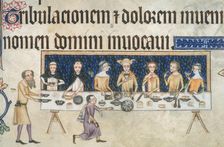 Tribulacionem et dolorem inueni
nomen domini inuocaui